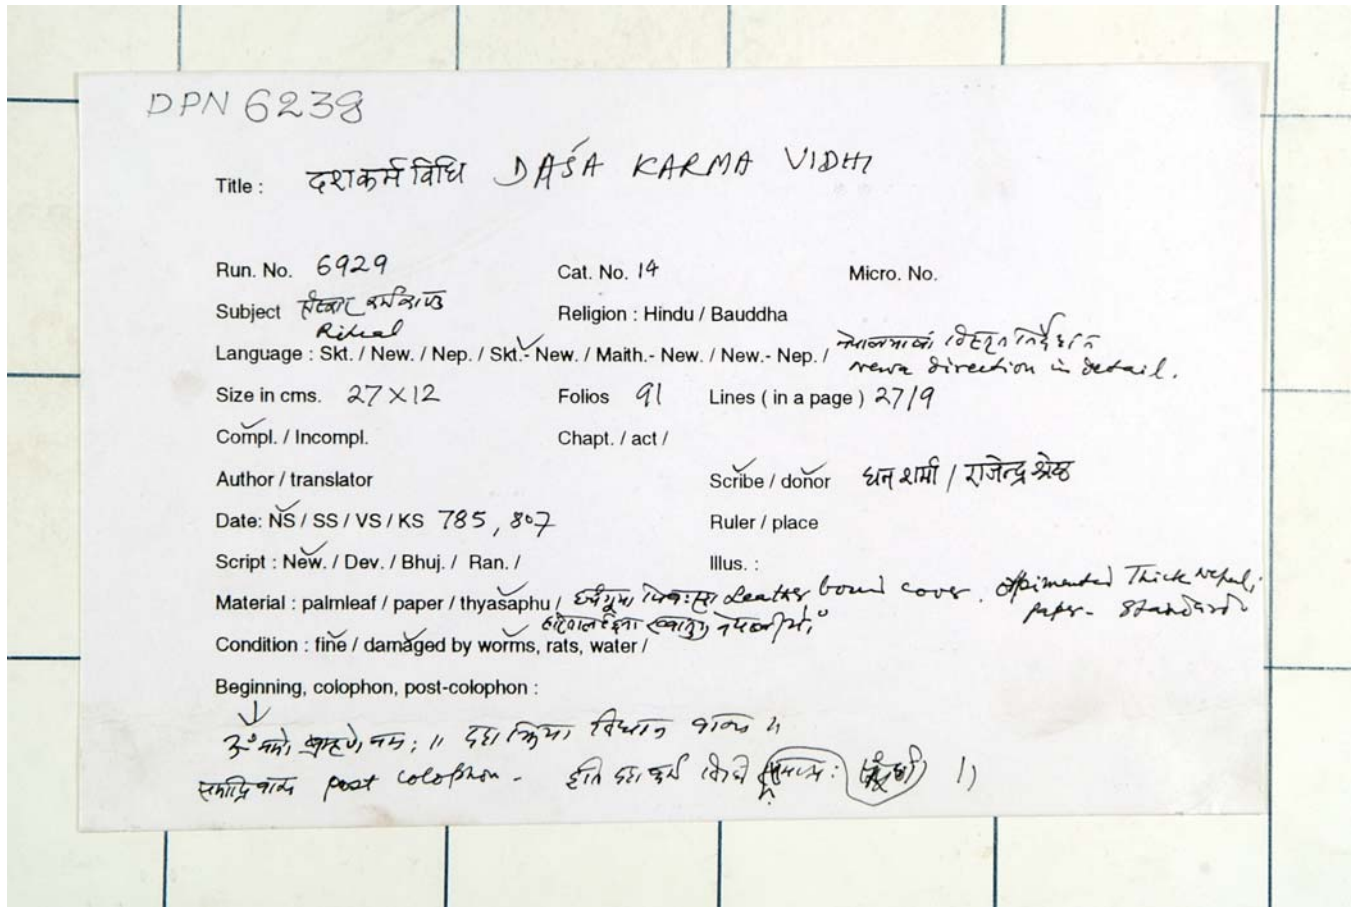 DPN 6238
Title : दशकर्म विधि DAŚA KARMA VIDHI
Run. No. 6929 Cat. No. 14 Micro. No.
Subject संस्कार कर्मकाण्ड Religion : Hindu / Bauddha
Ritual
Language : Skt. / New. / Nep. / Skt.- New. / Maith.- New. / New.- Nep. / नेपालभाषां विस्तृत निर्देशन
newa direction in detail.
Size in cms. 27×12 Folios 91 Lines ( in a page ) 27/9
Compl. / Incompl. Chapt. / act /
Author / translator Scribe / donor धन शर्मा / राजेन्द्र श्रेष्ठ
Date: NS / SS / VS / KS 785, 807 Ruler / place
Script : New. / Dev. / Bhuj. / Ran. / Illus. :
Material : palmleaf / paper / thyasaphu / Leather bound cover. Thick Nepali
paper - Standard
Condition : fine / damaged by worms, rats, water /
Beginning, colophon, post-colophon :
ॐ नमो ब्रह्मणे नमः ॥ दश क्रिया विधान वाक्य ॥
समाप्ति वाक्य post colophon - इति दश कर्म विधि